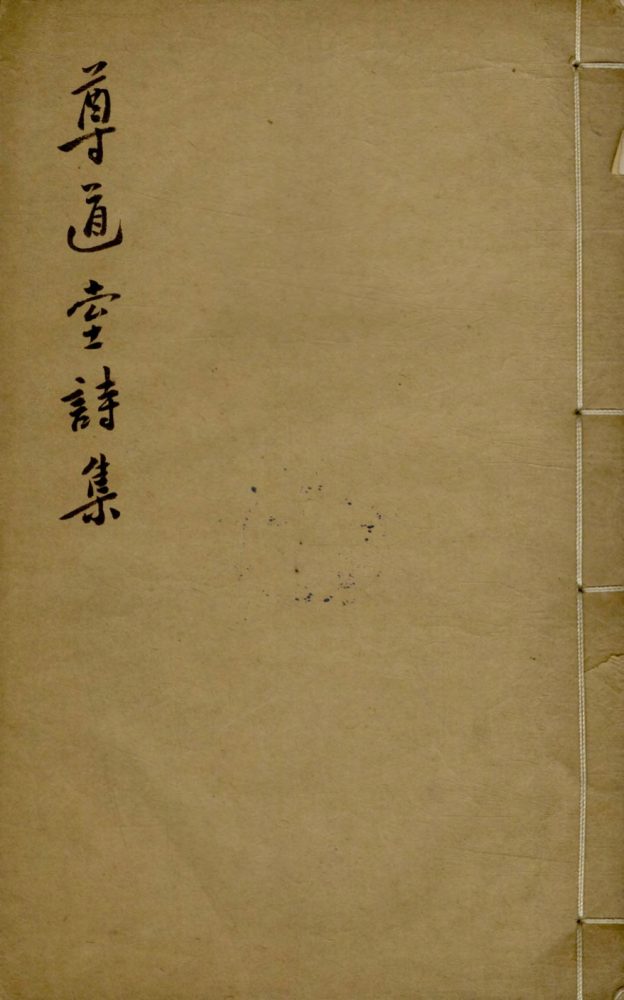 尊道堂詩集